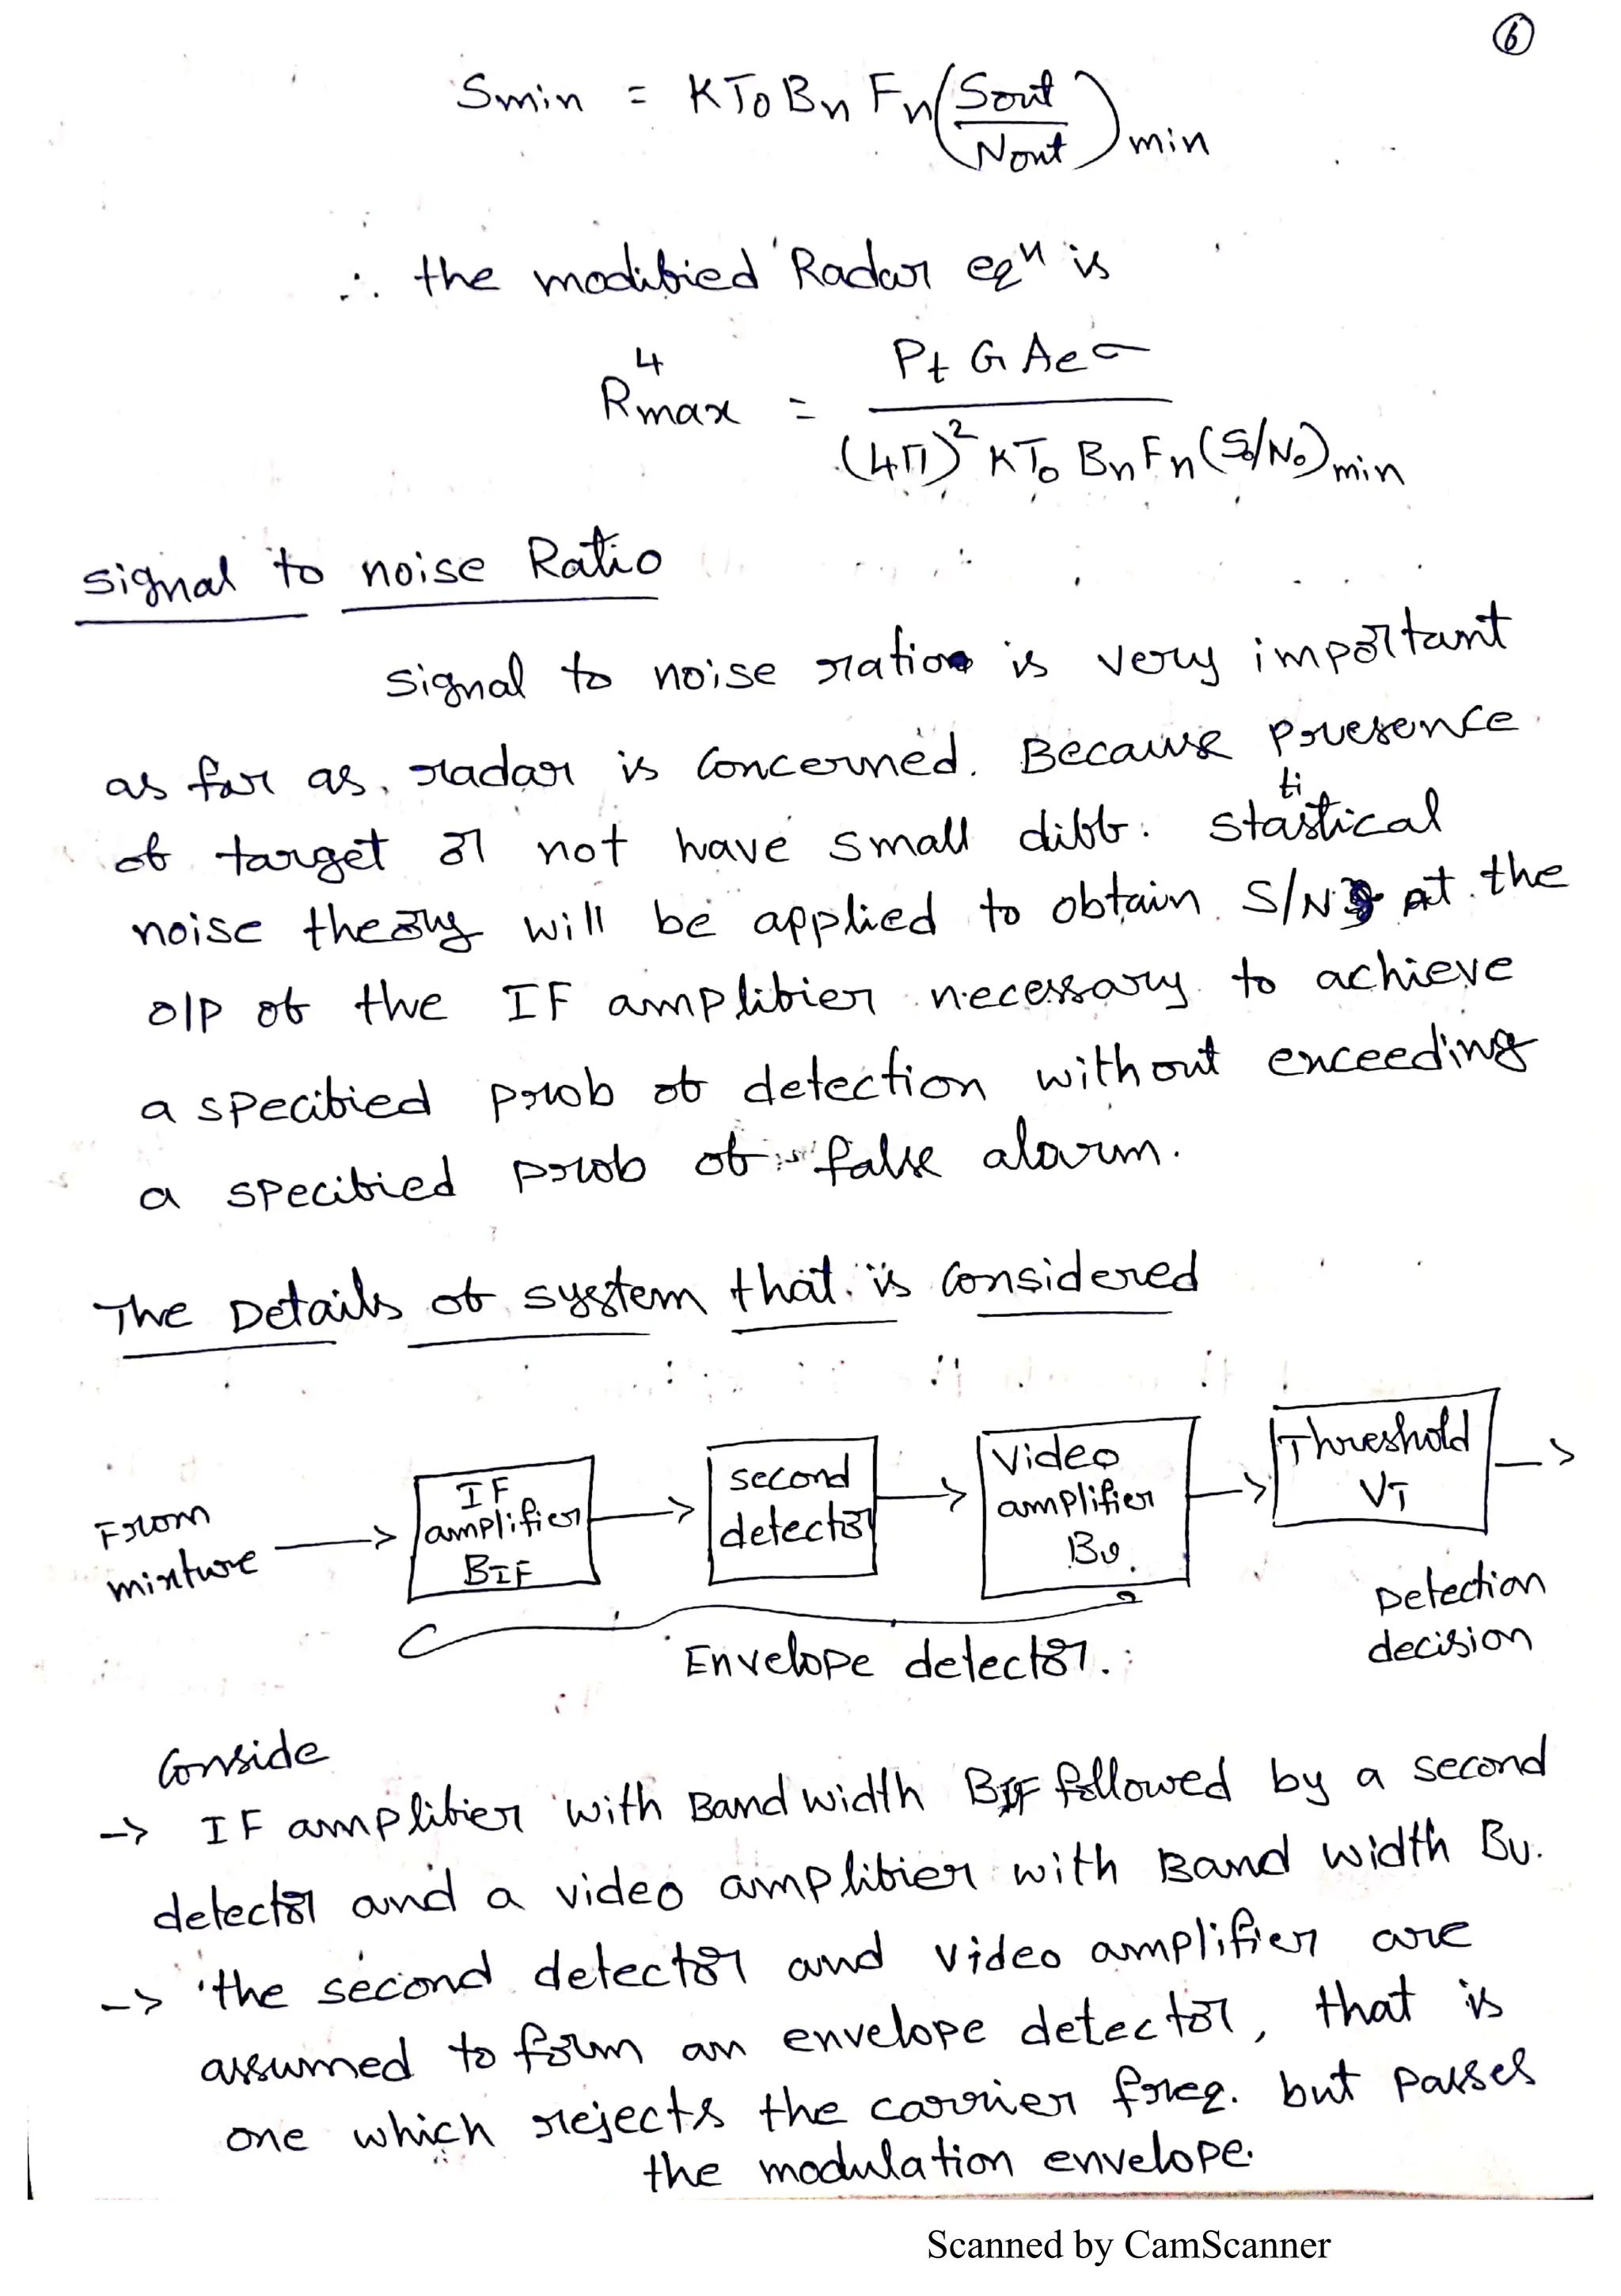 6
Smin = KT0 Bn Fn (Sout/Nout)min
∴ the modified Radar eqn is
R⁴max = Pt G Ae σ / (4π)² KT0 Bn Fn (So/No)min
signal to noise Ratio
signal to noise ratio is very important
as far as radar is concerned. Because presence
of target or not have small diff. Statistical
noise theory will be applied to obtain S/N at the
o/p of the IF amplifier necessary to achieve
a specified prob of detection without exceeding
a specified prob of false alarm.
The Details of system that is considered
From mixture
IF amplifier BIF
second detector
Video amplifier Bv
Threshold VT
Detection decision
Envelope detector.
Conside
-> IF amplifier with Band width BIF followed by a second
detector and a video amplifier with Band width Bv.
-> the second detector and video amplifier are
assumed to form an envelope detector, that is
one which rejects the carrier freq. but passes
the modulation envelope.
Scanned by CamScanner